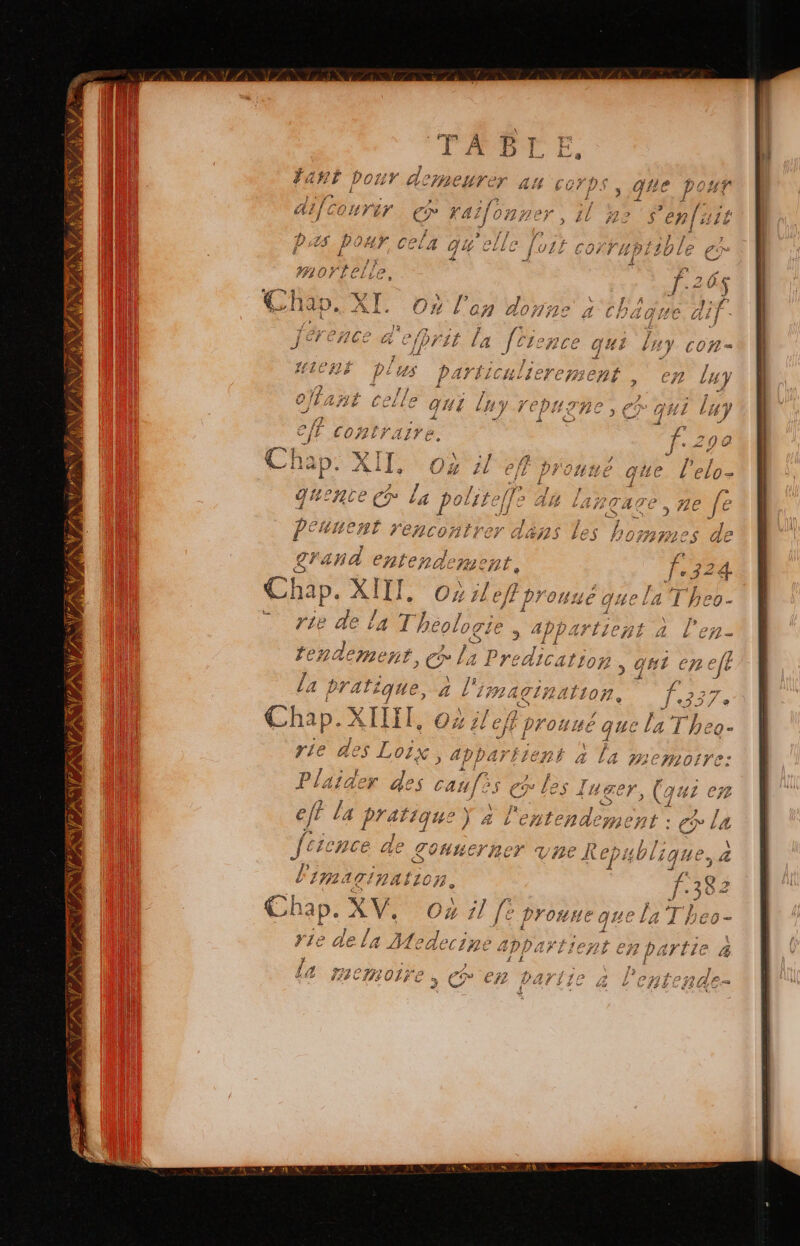 TABLE.
tant pour demeurer au corps, que pour
discourir & raisonner, il ne s'ensuit
pas pour cela qu'elle soit corruptible &
mortelle. f.265
Chap. XI. Où l'on donne à châque dif-
ference d'esprit la science qui luy con-
uient plus particulierement, en luy
ostant celle qui luy repugne, & qui luy
est contraire. f.290
Chap. XII. Où il est prouué que l'elo-
quence & la politesse du langage, ne se
peuuent rencontrer dans les hommes de
grand entendement. f.324
Chap. XIII. Où il est prouué que la Theo-
rie de la Theologie, appartient à l'en-
tendement, & la Predication, qui en est
la pratique, à l'imagination. f.337.
Chap. XIIII. Où il est prouué que la Theo-
rie des Loix, appartient à la memoire:
Plaider des causes & les Iuger, (qui en
est la pratique) à l'entendement : & la
science de gouuerner vne Republique, à
l'imagination. f.382
Chap. XV. Où il se prouue que la Theo-
rie de la Medecine appartient en partie à
la memoire, & en partie à l'entende-